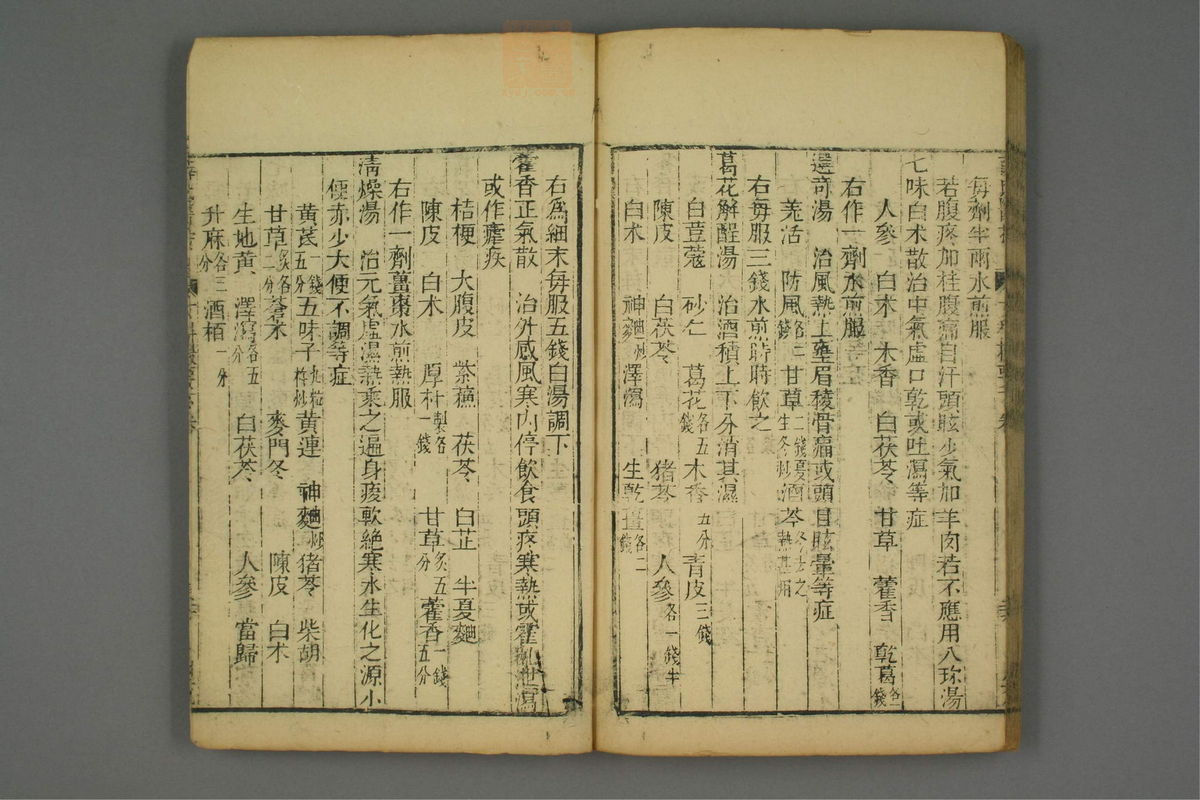 每劑半兩水煎服
若腹疼加桂腹痛自汗頭眩少氣加羊肉若不應用八珍湯
七味白术散治中氣虛口乾或吐瀉等症
人參 白术 木香 白茯苓 甘草 藿香 乾葛各一錢
右作一劑水煎服
選竒湯 治風熱上壅眉稜骨痛或頭目眩暈等症
羗活 防風各二錢 甘草二錢夏生冬炒 酒芩冬去之熱甚用
右每服三錢水煎時時飲之
葛花解酲湯 治酒積上下分消其濕
白荳蔻 砂仁 葛花各五錢 木香五分 青皮三錢
陳皮 白茯苓 猪苓 人參各一錢半
白术 神麯炒 澤瀉 生乾薑各二錢
右爲細末每服五錢白湯調下
藿香正氣散 治外感風寒内停飲食頭疼寒熱或霍乱泄瀉
或作瘧疾
桔梗 大腹皮 紫蘓 茯苓 白芷 半夏麯
陳皮 白术 厚朴製各一錢 甘草炙五分 藿香一錢五分
右作一劑薑棗水煎熱服
清燥湯 治元氣虛濕熱乘之遍身痠軟絶寒水生化之源小
便赤少大便不調等症
黃芪一錢五分 五味子九粒杵炒 黃連 神麯炒 猪苓 柴胡
甘草炙各二分 蒼术 麥門冬 陳皮 白术
生地黃 澤瀉各五分 白茯苓 人參 當歸
升麻各三分 酒栢一分